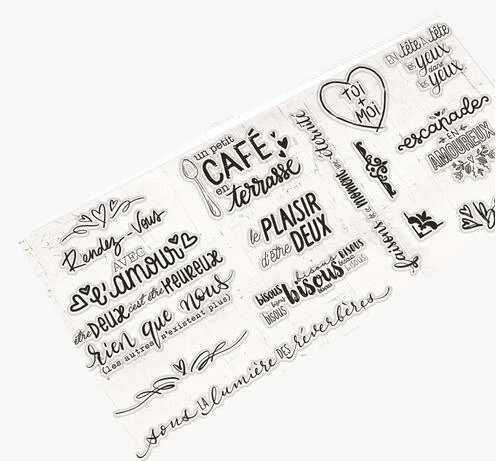 Rendez Vous
AVEC
l'amour
être DEUX c'est être HEUREUX
rien que nous
(les autres n'existent plus)
sous LA lumière DES réverbères
un petit
CAFÉ
en
terrasse
le PLAISIR
d'être DEUX
bisous bisous BISOUS
bisous bijoux bisous
BISOUS
faisons de ce moment une éternité
toi
+
moi
EN tête À tête
les yeux
dans
les yeux
escapade
EN
AMOUREUX